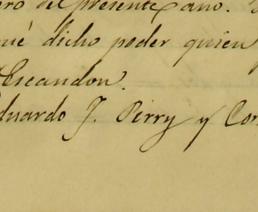 ero del presente año.
qué dicho poder quien
Escandon.
duardo J. Perry y Con